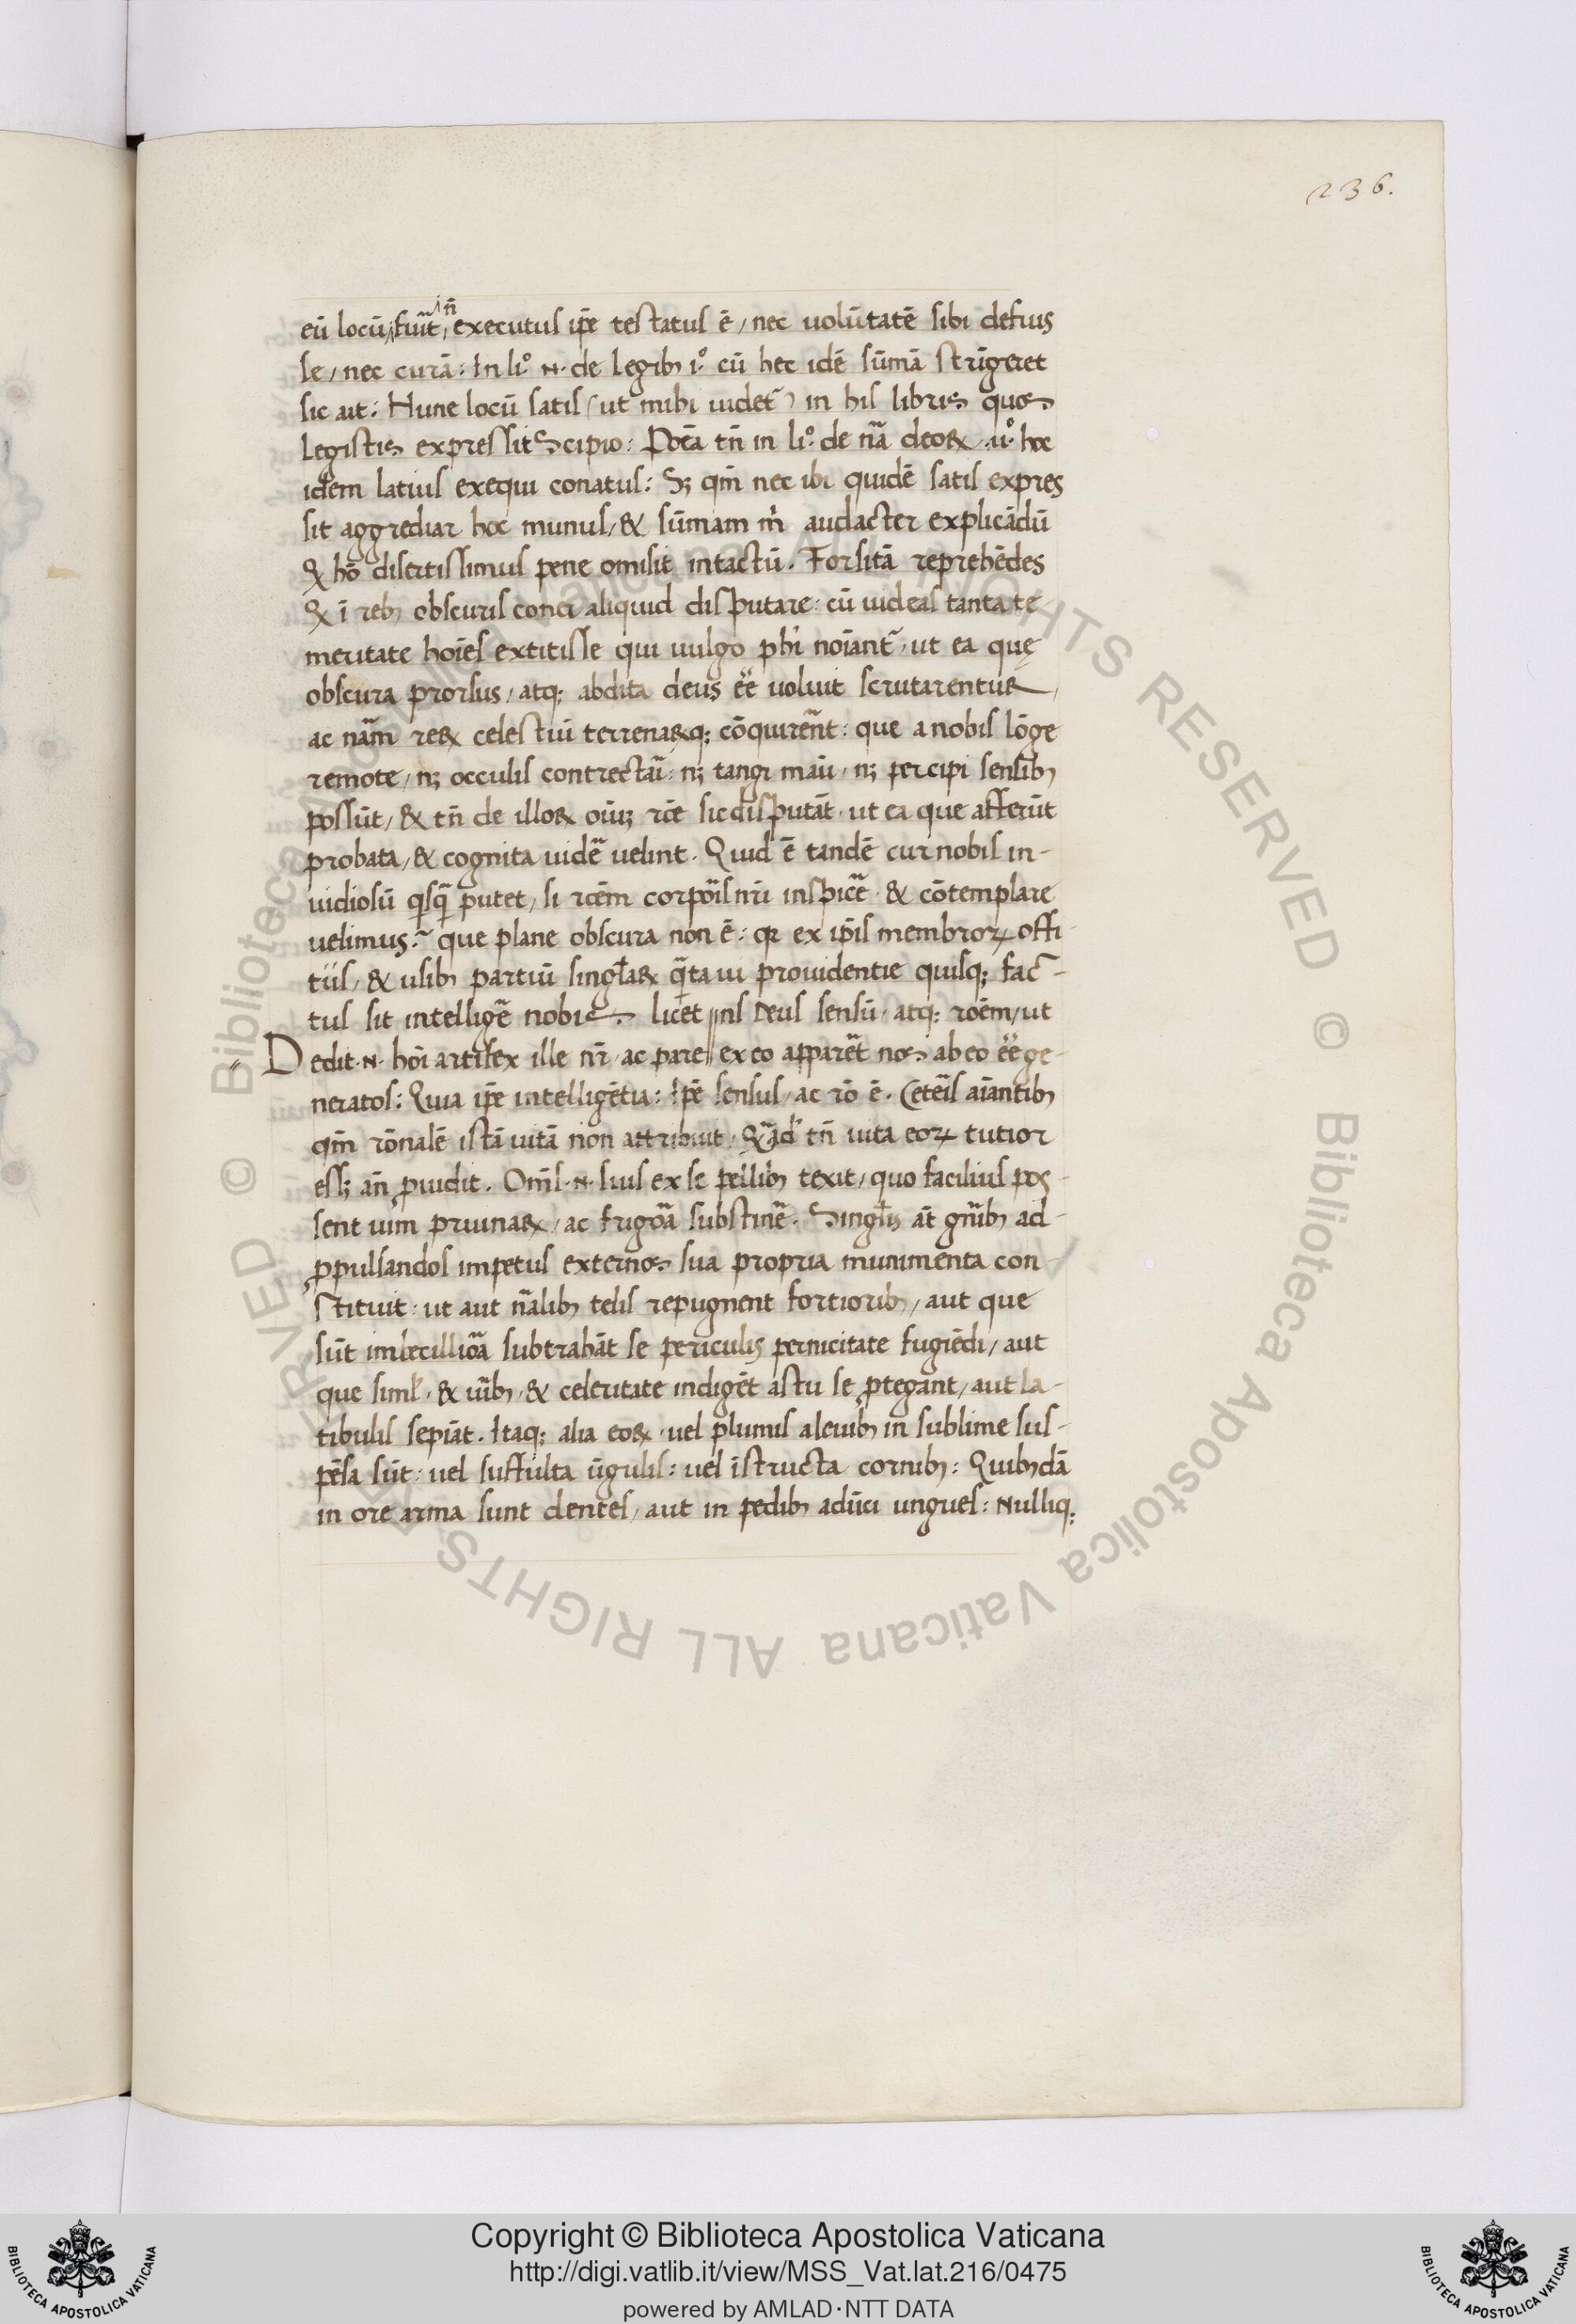 236.
eũ locũ, fuit̃, ñ executus ip̃e testatus ẽ / nec uolũtatẽ sibi defuis
se / nec curã: In li.º .N. de legib; i.º cũ hec idẽ sũmã strĩgeret
sic ait: Hunc locũ satis (ut mihi uidet̃) in his libris quos
legistis expressit Scipio: Postea tñ in li.º de nã deoꝝ .ii.º hoc
idem latius exequi conatus: Sꝫ qm̃ nec ibi quidẽ satis expres
sit aggrediar hoc munus / & sũmam m̃ audacter explicãdũ
qᷓ hõ disertissimus pene omisit intactũ. Forsitã reprehẽdes
qᷓ ĩ reb; obscuris coner aliquid disputare: cũ uideas tanta te
meritate hoĩes extitisse qui uulgo ph̃i noĩant̃, ut ea quę
obscura prorsus / atq; abdita deus ẽẽ uoluit scrutarentur /
ac nãm reꝝ celestiũ terrenaꝝq; cõquirẽnt: que a nobis lõge
remote / nꝫ occulis contrectaĩ: nꝫ tangi maũ / nꝫ percipi sensib;
possũt / & tñ de illoꝝ oĩuꝫ rõe sic disputãt · ut ea que afferũt
probata / & cognita uidẽ uelint. Quid ẽ tandẽ cur nobis in-
uidiosũ q̃sq̃ putet / si rõem corpoĩs nr̃i inspicẽ · & cõtemplare
uelimus:~ que plane obscura non ẽ: qꝛ ex ip̃is membroꝝ offi-
tiis / & usib; partiũ singl̃aꝝ q̃ta ui prouidentie quisq; fac-
tus sit intelligẽ nobis licet // ns Deus sensũ · atq; roẽm / ut
Dedit .N. hõi artifex ille nr̃ · ac pare // ex eo apparẽt nos ab eo ẽẽ ge-
neratos: Quia ip̃e intelligẽtia: Ip̃e sensus / ac rõ ẽ. Ceteĩs aĩantib;
qm̃ rõnalẽ istã uitã non attribuit / qᷓad tñ uita eoꝝ tutior
essꝫ añ ꝓuidit. Om̃s .N. suis ex se pellib; texit / quo facilius pos-
sent uim pruinaꝝ / ac frigoã substinẽ. Singl̃is aũt gñib; ad
ꝓpulsandos impetus externos sua propria munimenta con
stituit: ut aut ñalib; telis repugnent fortiorib; / aut que
sũt imbecillioã subtrahãt se periculis pernicitate fugiẽdi / aut
que siml̃ · & uĩb; · & celeritate indigẽt astu se ꝓtegant / aut la-
tibulis sepiãt. Itaq; alia eoꝝ · uel plumis aleuib; in sublime sus-
pẽsa sũt: uel suffulta ũgulis: uel ĩstructa cornib;: Quib;dã
in ore arma sunt dentes / aut in pedib; adũci ungues: Nulliq;
Copyright © Biblioteca Apostolica Vaticana
http://digi.vatlib.it/view/MSS_Vat.lat.216/0475
powered by AMLAD·NTT DATA